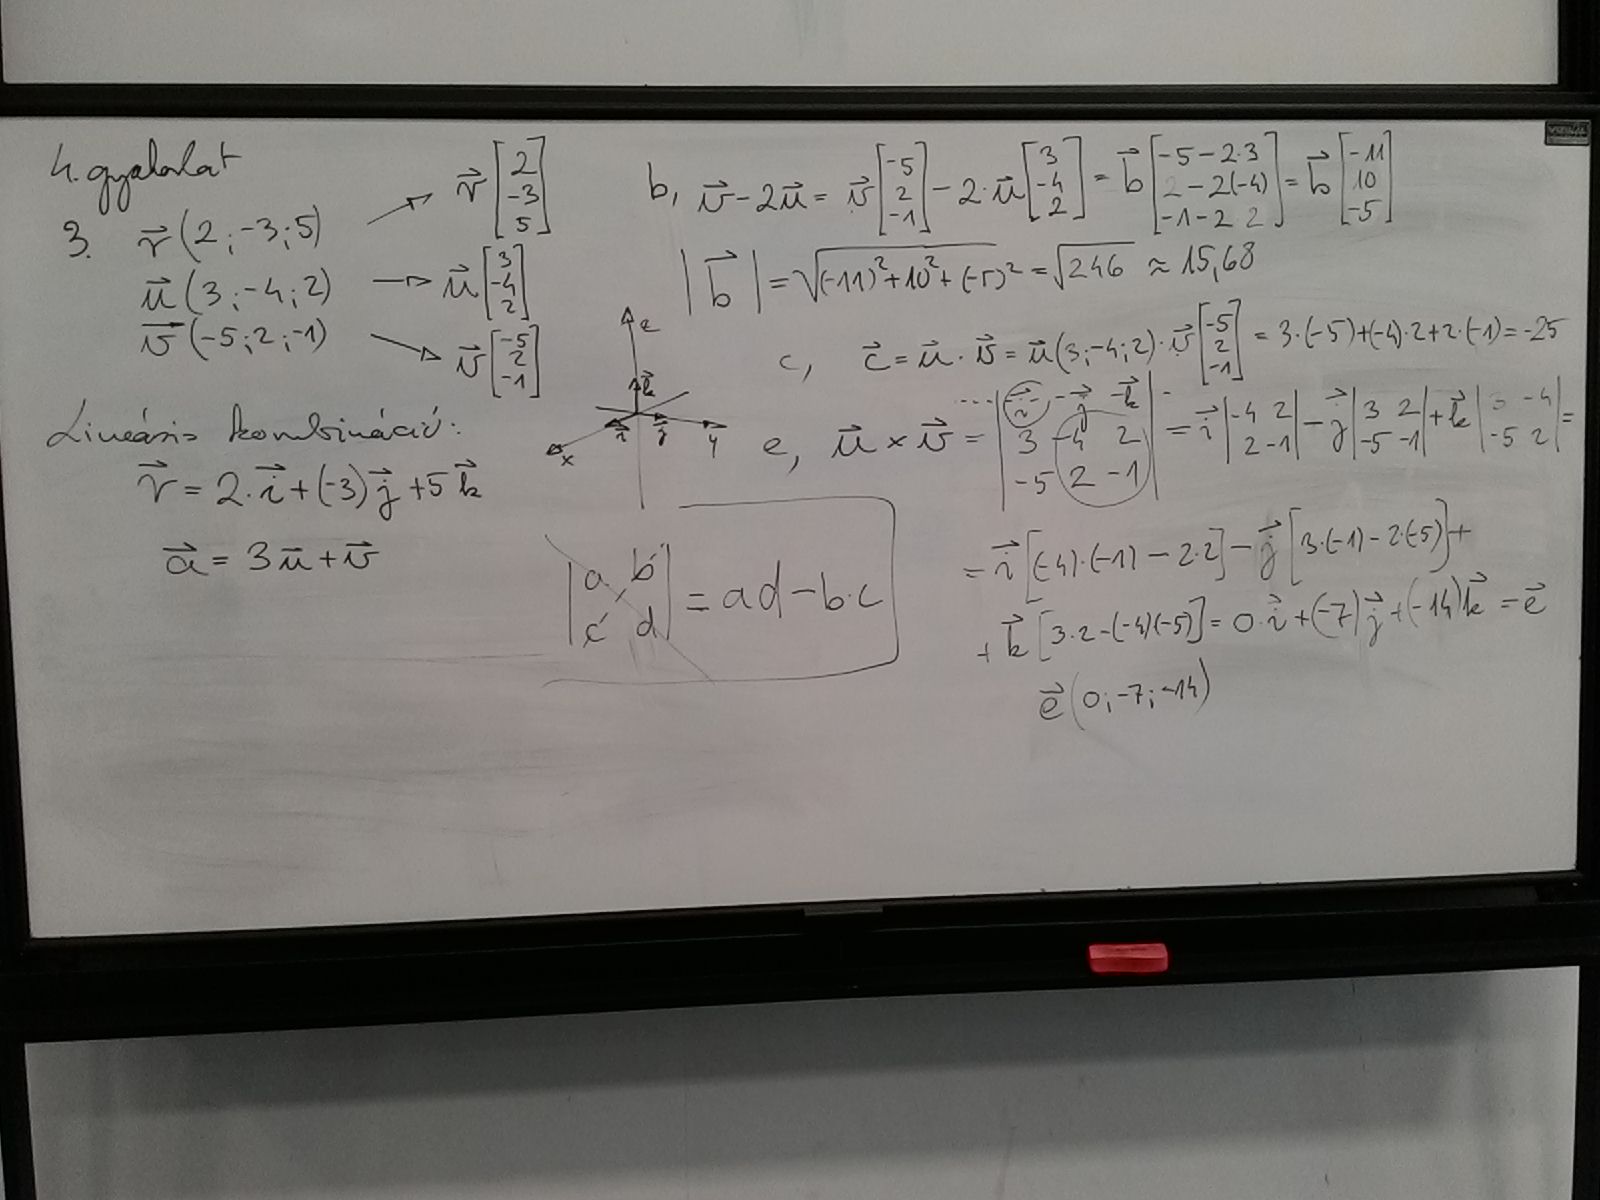 4. gyakorlat
3. r⃗ (2; -3; 5) → r⃗ [2 -3 5]
u⃗ (3; -4; 2) → u⃗ [3 -4 2]
v⃗ (-5; 2; -1) → v⃗ [-5 2 -1]
Lineáris kombináció:
r⃗ = 2·i⃗ + (-3)j⃗ + 5k⃗
a⃗ = 3u⃗ + v⃗
z
k⃗
i⃗ j⃗
x y
|a b c d| = ad - b·c
b, v⃗ - 2u⃗ = v⃗ [-5 2 -1] - 2·u⃗ [3 -4 2] = b⃗ [-5-2·3 2-2(-4) -1-2 2] = b⃗ [-11 10 -5]
|b⃗| = √((-11)² + 10² + (-5)²) = √246 ≈ 15,68
c, c⃗ = u⃗ · v⃗ = u⃗(3; -4; 2) · v⃗ [-5 2 -1] = 3·(-5)+(-4)·2+2·(-1) = -25
e, u⃗ × v⃗ = |i⃗ -j⃗ k⃗ 3 -4 2 -5 2 -1| = i⃗ |-4 2 2 -1| - j⃗ |3 2 -5 -1| + k⃗ |3 -4 -5 2| =
= i⃗ [(-4)·(-1) - 2·2] - j⃗ [3·(-1) - 2·(-5)] +
+ k⃗ [3·2 - (-4)(-5)] = 0·i⃗ + (-7)j⃗ + (-14)k⃗ = e⃗
e⃗ (0; -7; -14)